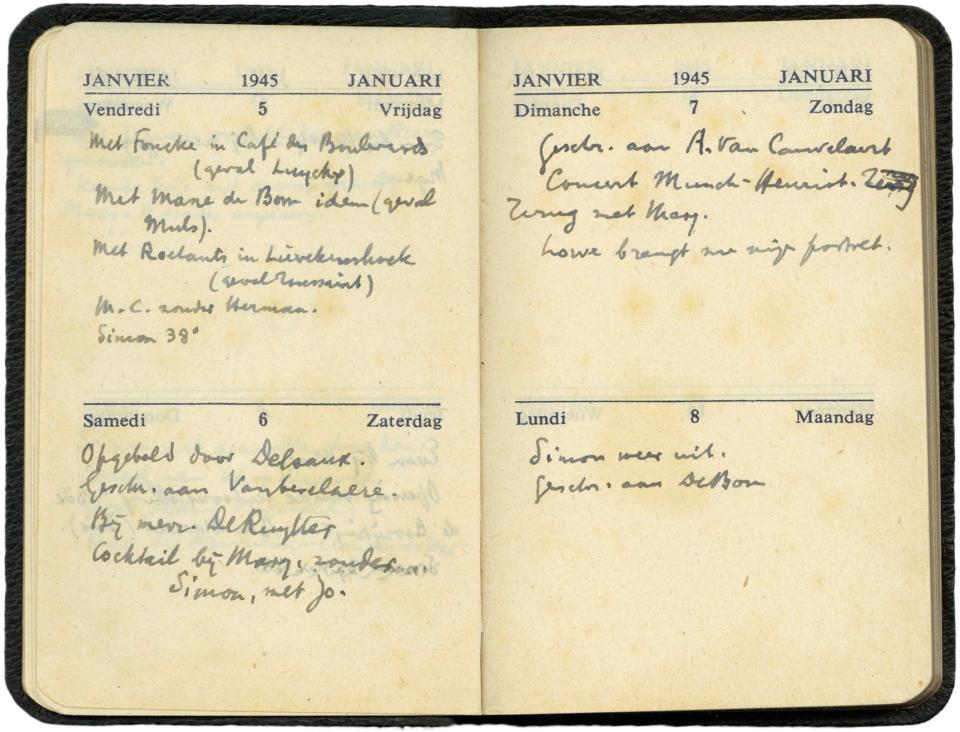 JANVIER 1945 JANUARI
Vendredi 5 Vrijdag
Met Foncke in Café des Boulevards
(geval Luyckx)
Met Marie de Bom idem (geval
Muls).
Met Roelants in Lievekenshoek
(geval Toussaint)
M.C. zonder Herman.
Simon 38°
Samedi 6 Zaterdag
Opgebeld door Delvaux.
Geschr. aan Vanbeselaere.
Bij mevr. De Ruytter
Cocktail bij Mary, zonder
Simon, met Jo.
JANVIER 1945 JANUARI
Dimanche 7 Zondag
Geschr. aan A. Van Cauwelaert
Concert Munch-Henriot.
Terug met Mary.
brengt me mijn portret.
Lundi 8 Maandag
Simon weer uit.
Geschr. aan De Bom